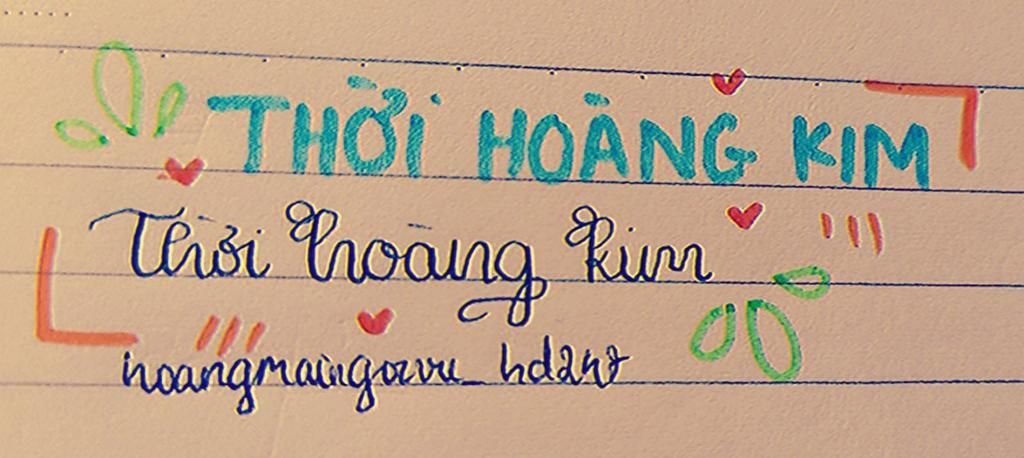 THỜI HOÀNG KIM
Thời hoàng kim